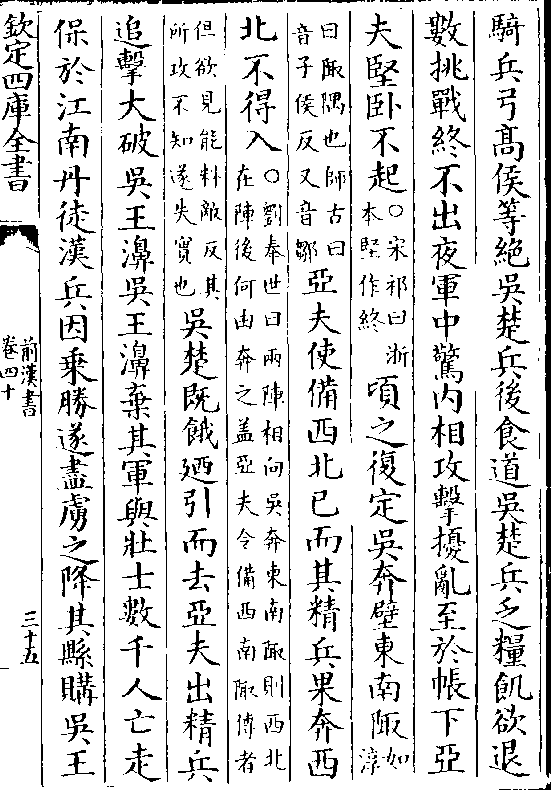 騎兵弓髙侯等絶吳楚兵後食道吳楚兵乏糧飢欲退
數挑戰終不出夜軍中驚内相攻擊擾亂至於帳下亞
夫堅卧不起○宋祁曰浙本堅作終頃之復定吳奔壁東南陬如淳
曰陬隅也師古曰音子侯反又音鄒亞夫使備西北已而其精兵果奔西
北不得入○劉奉世曰兩陣相向吳奔東南陬則西北在陣後何由奔之盖亞夫令備西南陬傳者
但欲見能料敵反其所攻不知遂失實也吳楚既餓廼引而去亞夫出精兵
追擊大破吳王濞吳王濞棄其軍與壯士數千人亡走
保於江南丹徒漢兵因乗勝遂盡虜之降其縣購吳王
欽定四庫全書
前漢書
卷四十
三十五